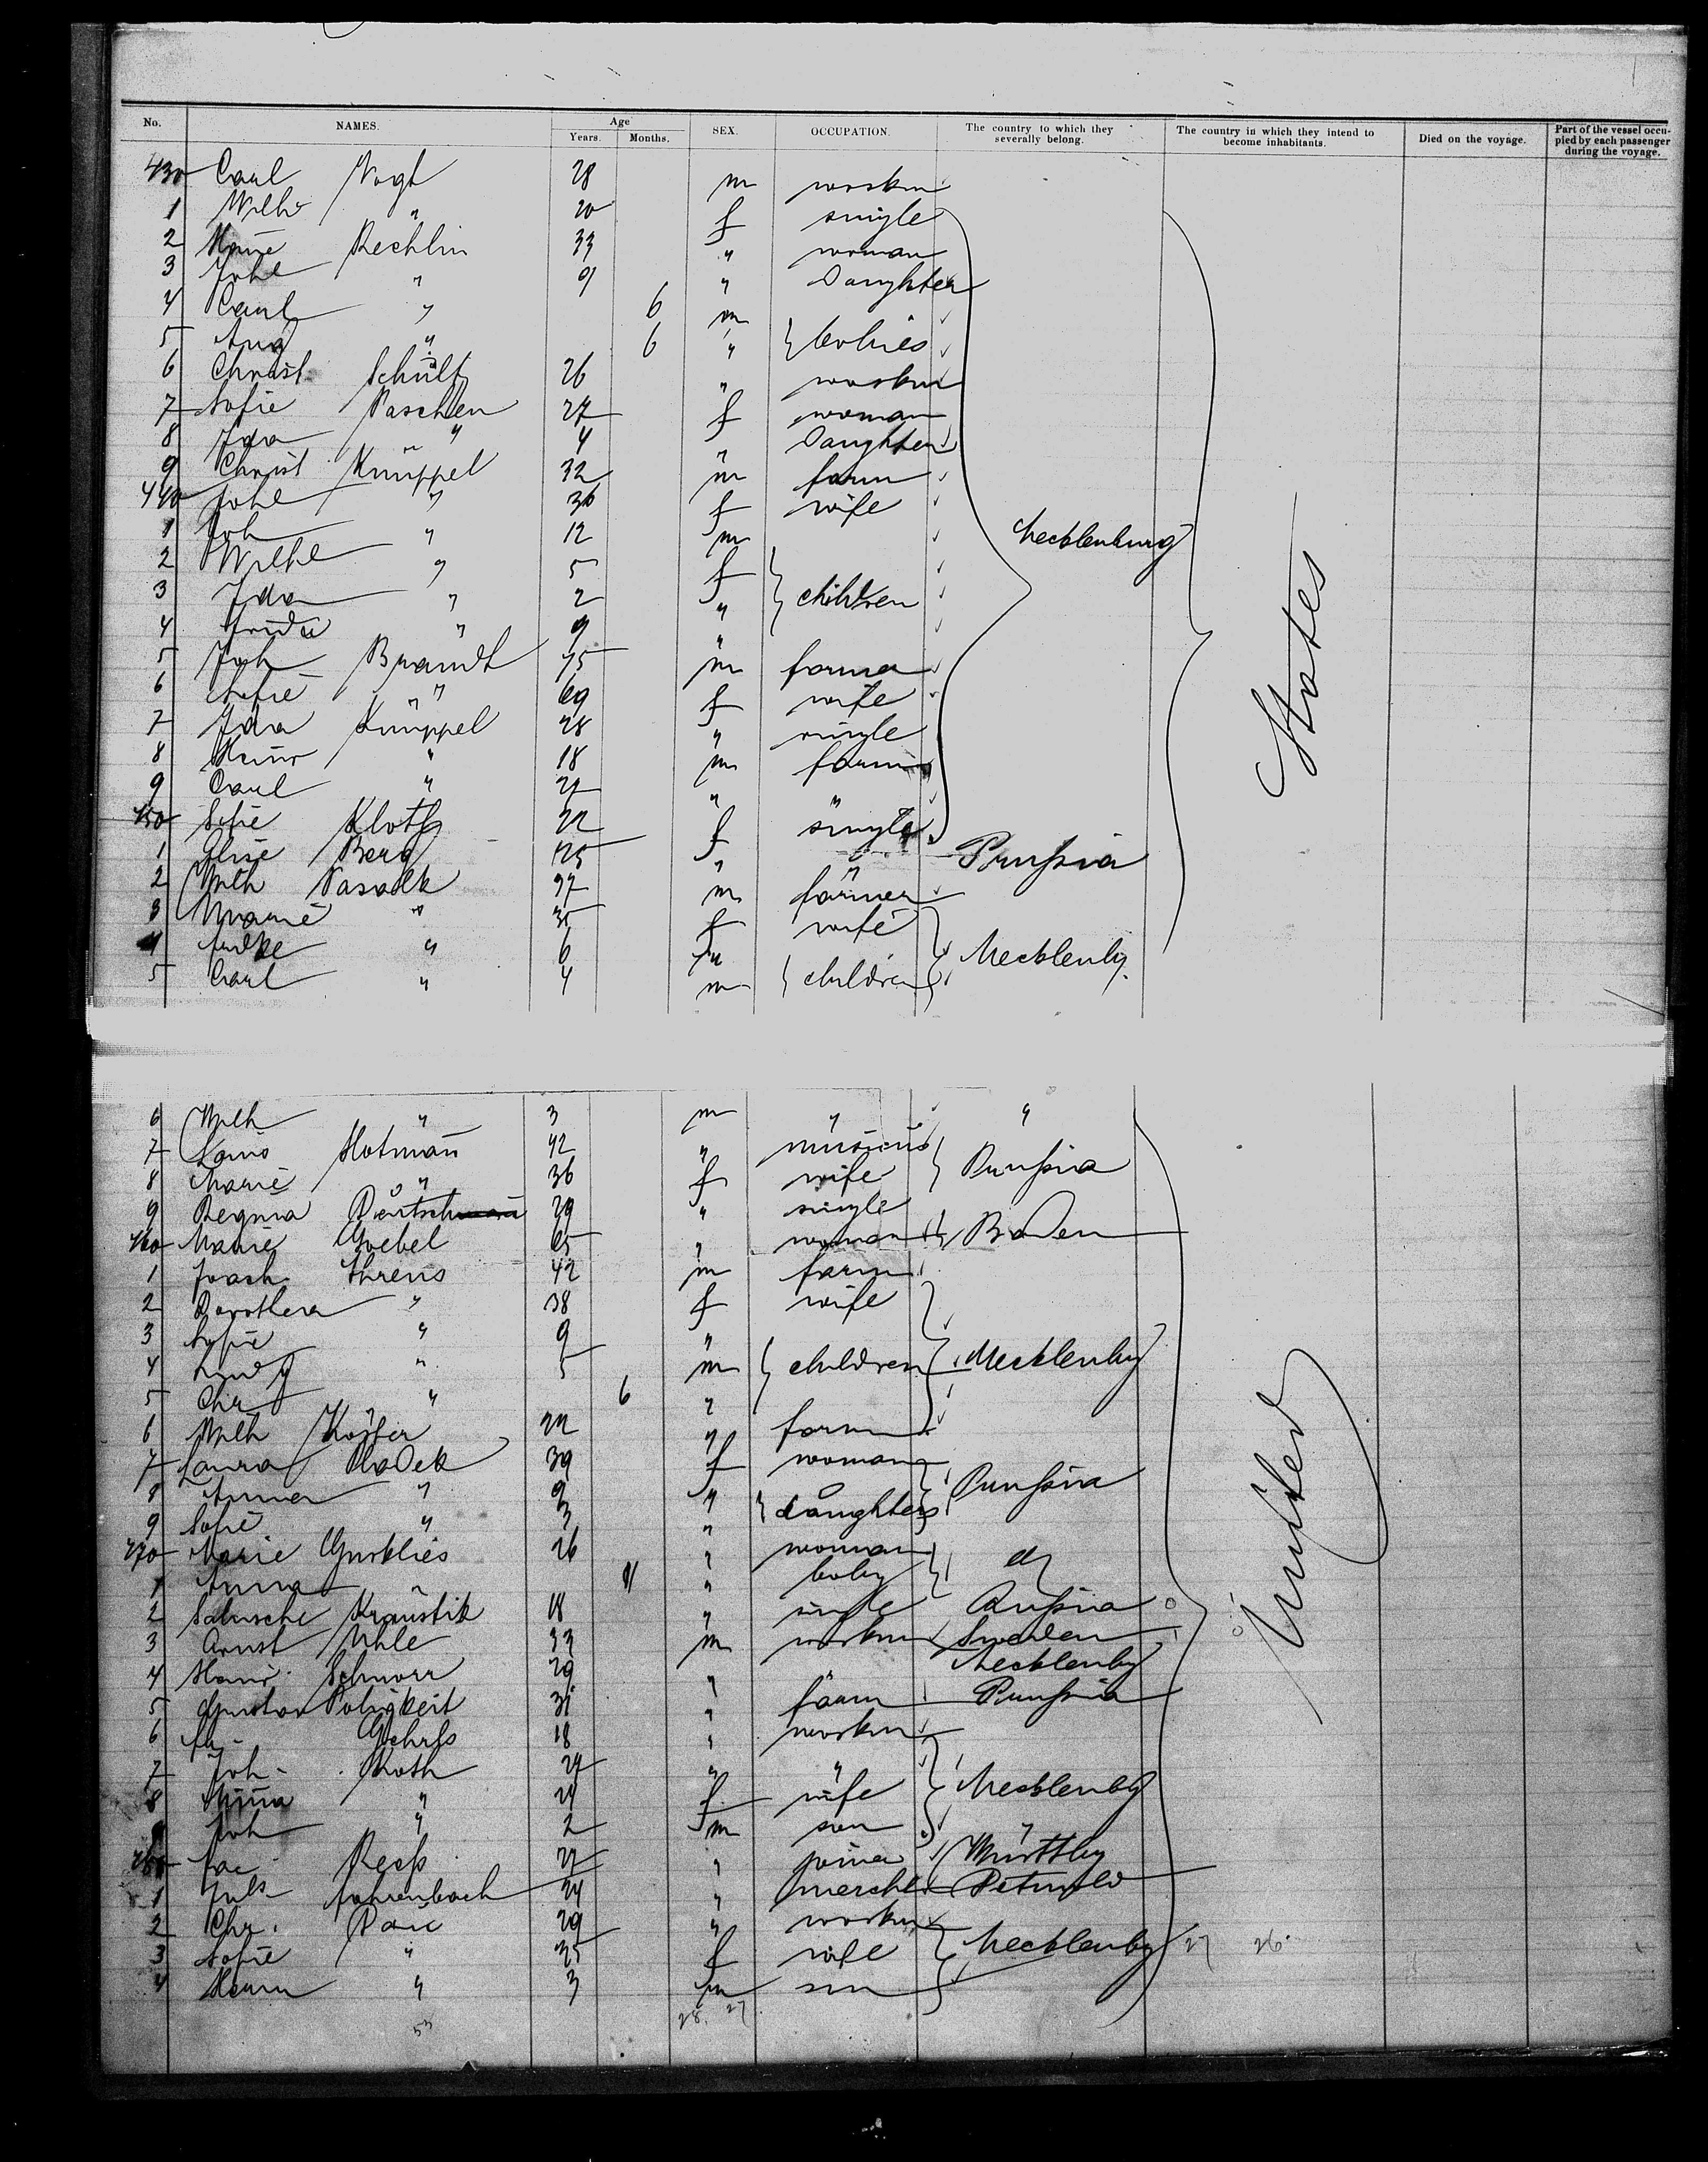 No. NAMES. Age Years. Months. SEX. OCCUPATION. The country to which they severally belong. The country in which they intend to become inhabitants. Died on the voyage. Part of the vessel occupied by each passenger during the voyage.
430 Carl Vogt 28 m workm
1 Wilhe " 20 f single
2 Marie Rechlin 33 " woman
3 Johe " 9 " Daughter
4 Carl " 6 m
5 Aug " 6 " } babies
6 Christ. Schult 26 " workm
7 Sofie Paschen 27 f woman
8 Ida " 4 " Daughter
9 Christ Knüppel 32 m farm
440 Johe " 36 f wife
1 Joh " 12 m Mecklenburg
2 Wilhe " 5 f
3 Ida " 2 " } children
4 " 9 "
5 Joh Brandt 75 m farmer
6 Sofie " 69 f wife
7 Ida Knüppel 28 " single
8 Heinr " 18 m farm
9 Carl " 27 " "
450 Sofie Kloth 22 f single
1 Elise Berg 25 " " Prussia
2 Wilh 37 m farmer
3 Marie " 35 f wife
4 " 6 " Mecklenbg.
5 Carl " 4 m } children
States
6 Wilh " 3 m " "
7 Louis Hotmann 42 " musicus
8 Marie " 36 f wife } Prussia
9 Regina 29 " single
460 Marie Goebel 65 " woman } Baden
1 Joach. Ahrens 42 m farm
2 Dorothea " 38 f wife
3 Sofie " 9 "
4 Ludw " 5 m } children Mecklenbg
5 Chr " 6 "
6 Wilh Köster 22 " farm
7 Laura Radek 39 f woman
8 Anna " 9 " Prussia
9 Sofie " 3 " } daughters
470 Marie 26 " woman
1 Anna " 11 " baby
2 18 " single Russia
3 Ernst Uhle 33 m workm Sweden
4 Heinr. Schnorr 29 " " Mecklenbg
5 Gustav Poligkeit 31 " farm Prussia
6 18 " workm
7 Joh. Roth 27 " "
8 Mina " 24 f wife Mecklenbg
9 Joh " 2 m son
480 27 " joiner Württbg
1 Juls Fahrenbach 24 " mercht
2 Chr. 29 " workm
3 Sofie " 35 f wife Mecklenbg 27 26
4 Herm " 3 m son
United
53 28. 27